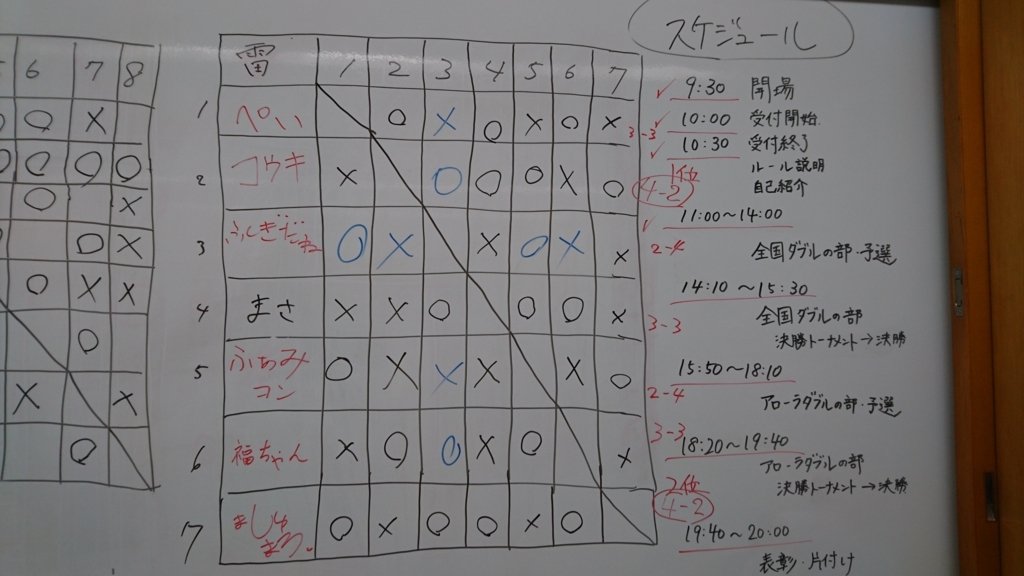 6 7 8
○ ○ ×
○ ○ ○ ○
○ ×
○ ×
○ × ×
○
× ×
○
雷 1 2 3 4 5 6 7
1 ぺい ○ × ○ × ○ × 3-3
2 コウキ × ○ ○ ○ × ○ 1位 4-2
3 ふしぎだね ○ × × ○ × × 2-4
4 まさ × × ○ ○ ○ × 3-3
5 ふぁみコン ○ × × × × ○ 2-4
6 福ちゃん × ○ ○ × ○ × 3-3
7 ましゅまろ。 ○ × ○ ○ × ○ 2位 4-2
スケジュール
✓ 9:30 開場
✓ 10:00 受付開始
✓ 10:30 受付終了
ルール説明
自己紹介
✓ 11:00~14:00
全国ダブルの部・予選
14:10~15:30
全国ダブルの部
決勝トーナメント→決勝
15:50~18:10
アローラダブルの部・予選
18:20~19:40
アローラダブルの部
決勝トーナメント→決勝
19:40~20:00
表彰・片付け